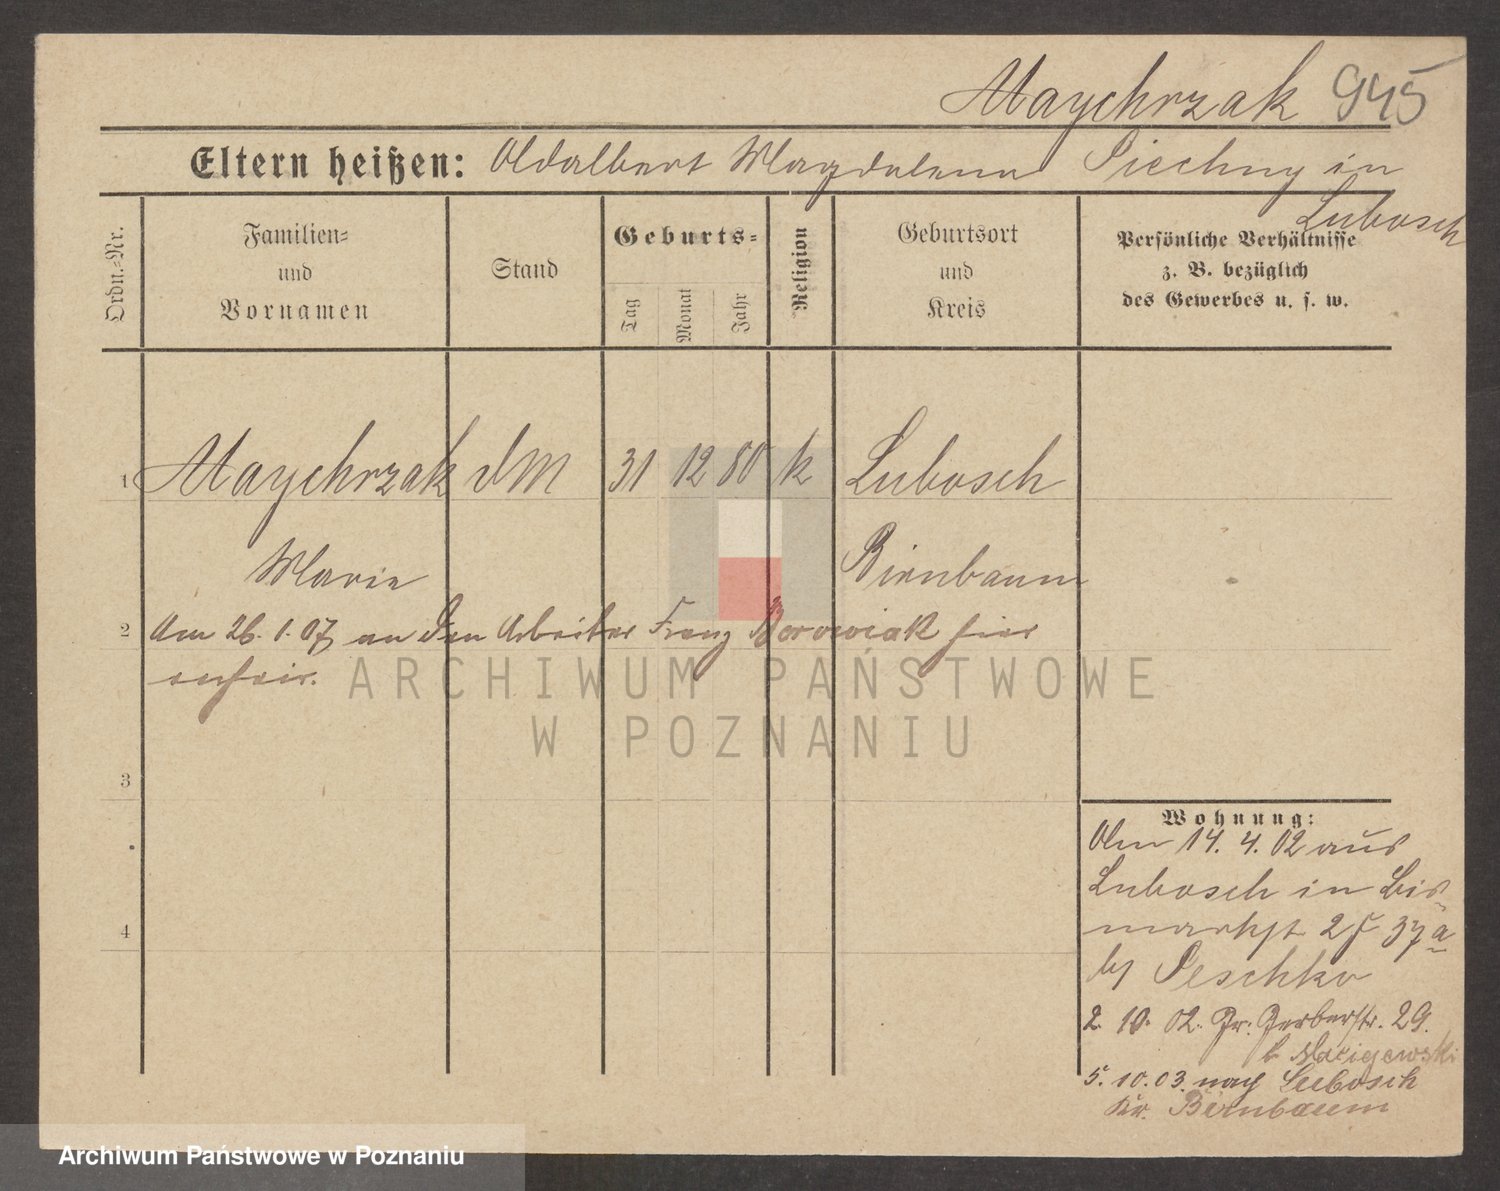 Maychrzak 945
Eltern heißen: Adalbert Magdalena Piechny in
Lubosch
Ordn.-Nr.
Familien-
und
Vornamen
Stand
Geburts-
Tag
Monat
Jahr
Religion
Geburtsort
und
Kreis
Persönliche Verhältnisse
z. B. bezüglich
des Gewerbes u. s. w.
1 Maychrzak DM 31 12 80 k Lubosch
Marie Birnbaum
2 Am 26. 1. 07 an den Arbeiter Franz Borowiak hier
verheir.
3
4
Wohnung:
Am 14. 4. 02 aus
Lubosch in Bis-
markst 2 37 a
bei Peschko
2. 10. 02. Gr. Gerberstr. 29.
b Maciejewski
5. 10. 03. nach Lubosch
Kr. Birnbaum
ARCHIWUM PAŃSTWOWE
W POZNANIU
Archiwum Państwowe w Poznaniu